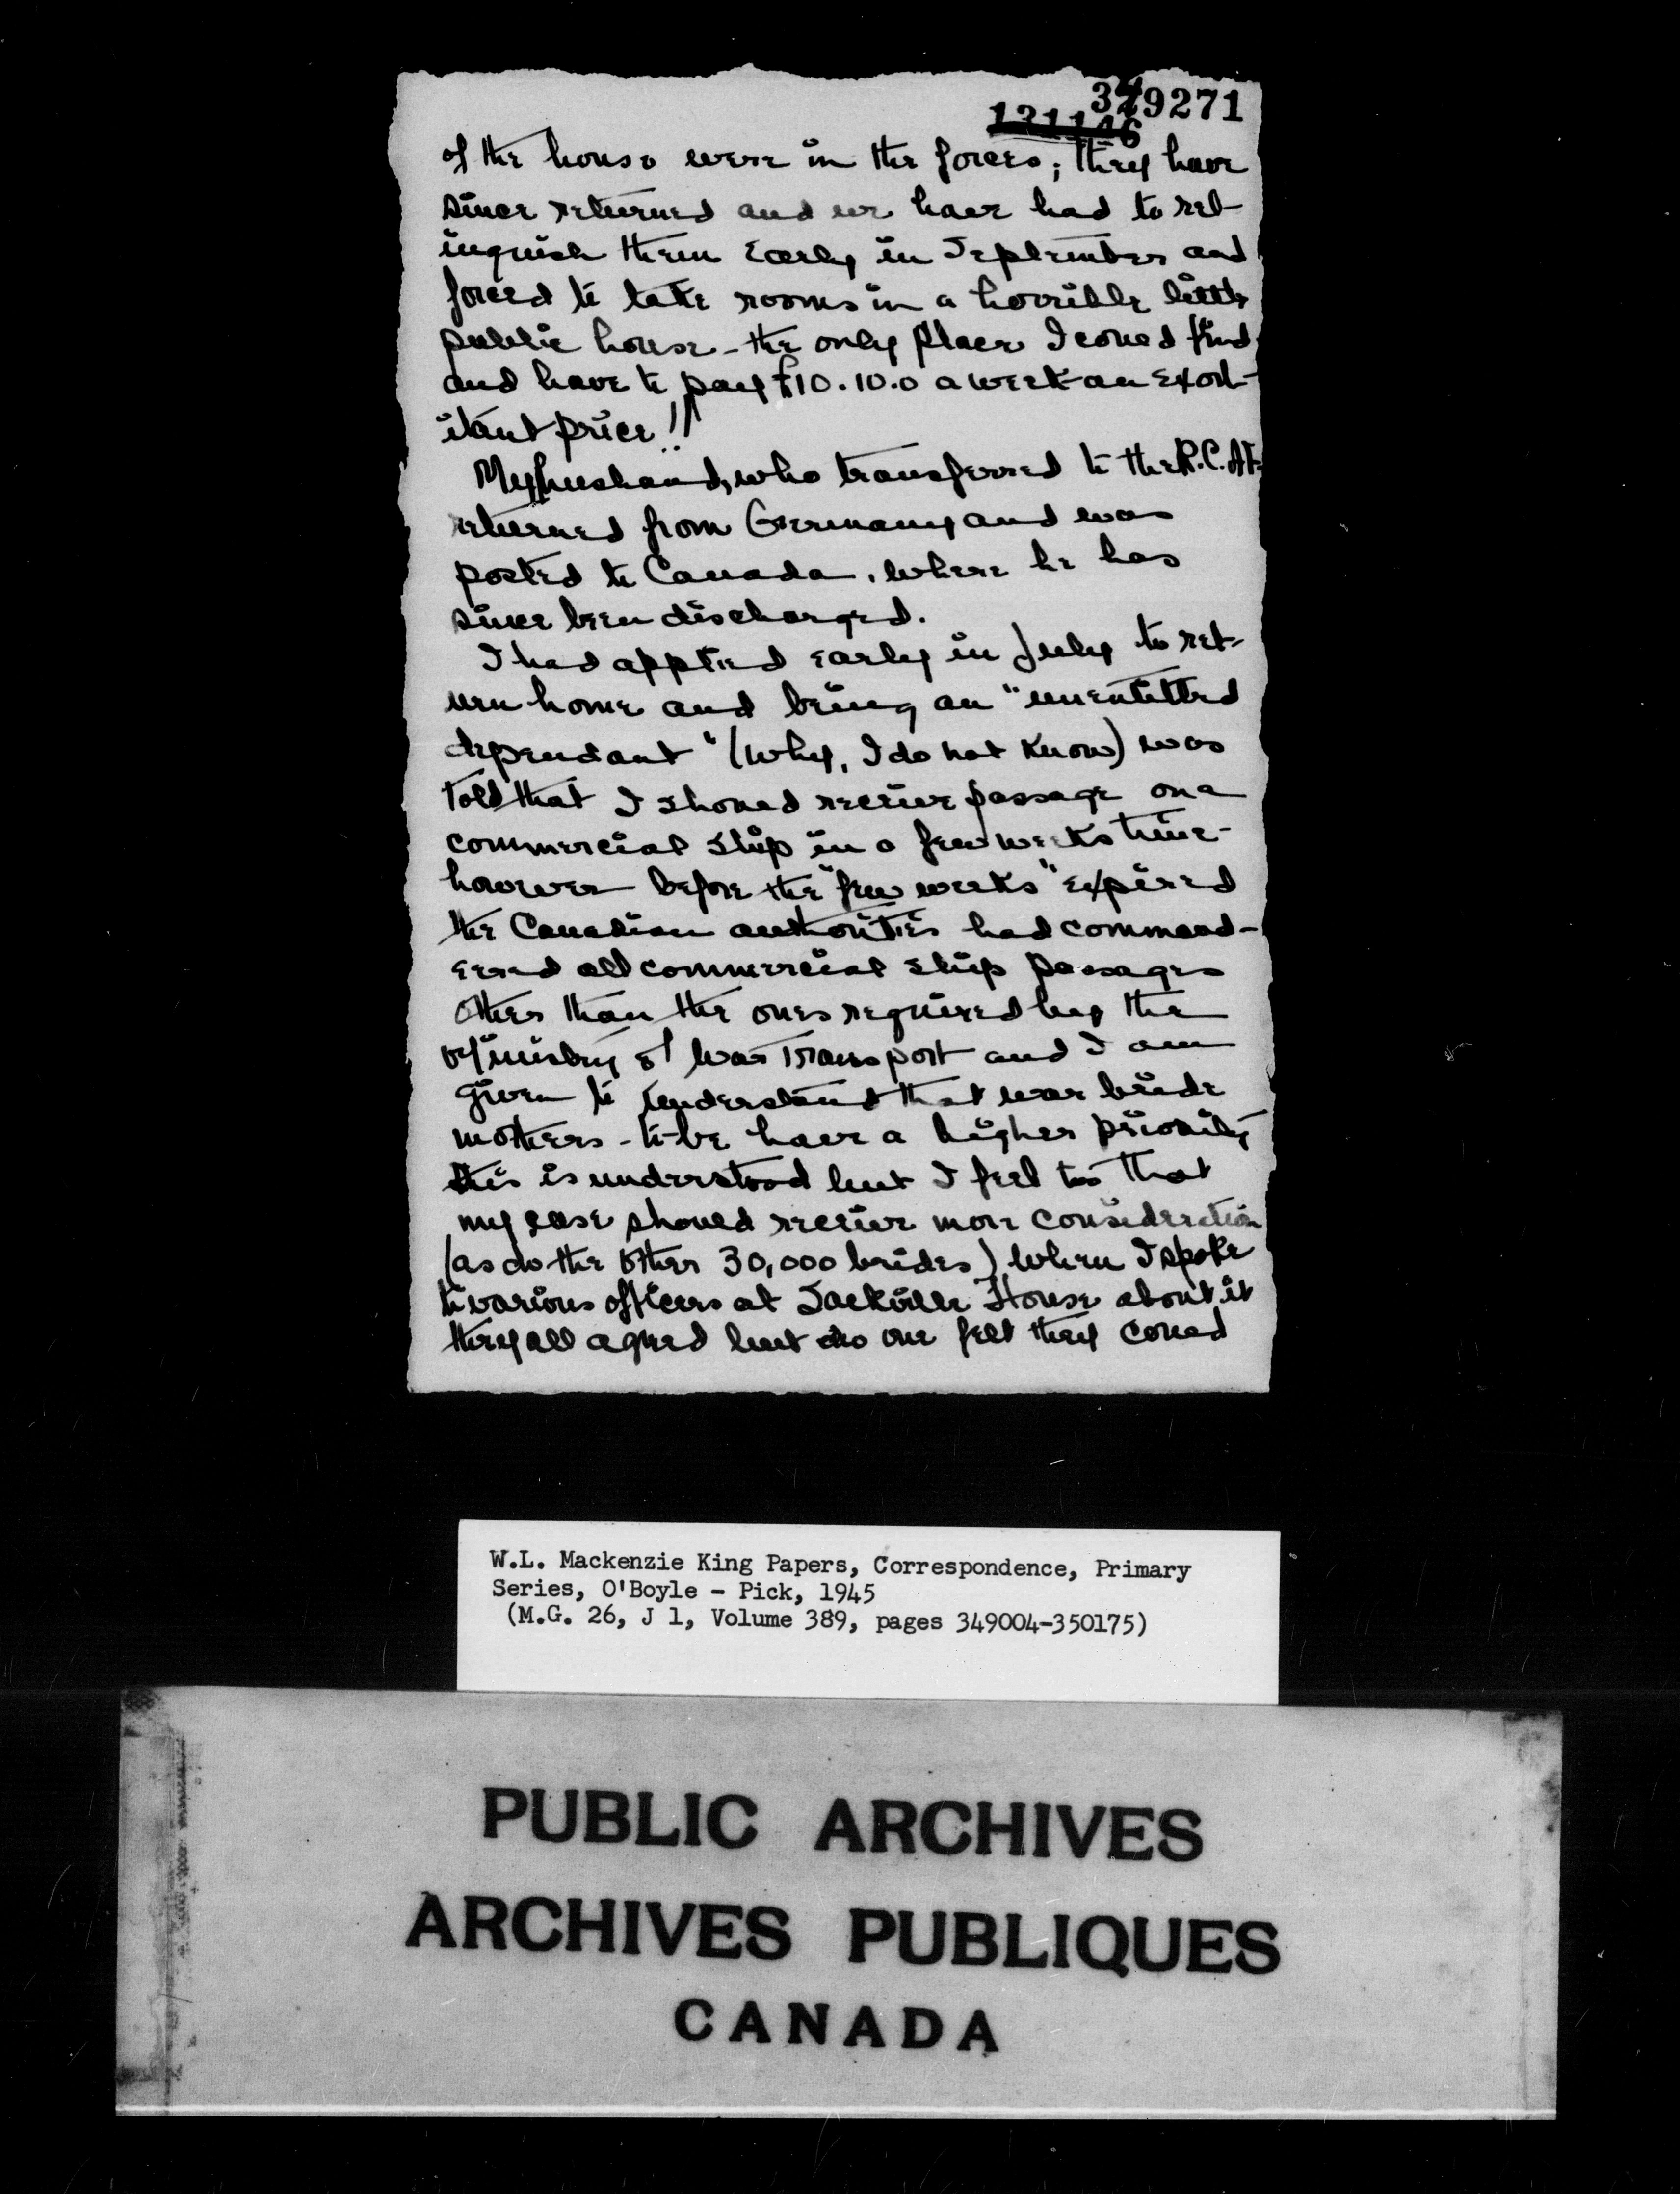 349271
131146
of the house were in the forces; they have
since returned and we have had to rel-
inquish them early in September and
forced to take rooms in a horrible little
public house - the only place I could find
and have to pay £10.10.0 a week an exorb-
itant price!!
My husband, who transferred to the R.C.A.F.
returned from Germany and was
posted to Canada, where he has
since been discharged.
I had applied early in July to ret-
urn home and being an "unentitled
dependant" (why, I do not know) was
told that I should receive passage on a
commercial ship in a few weeks time -
however before the "few weeks" expired
the Canadian authorities had command-
eered all commercial ship passages
other than the ones required by the
Ministry of War Transport and I am
given to understand that war bride
mothers-to-be have a higher priority
this is understood but I feel too that
my case should receive more consideration
(as do the other 30,000 brides) when I spoke
to various officers at Sackville House about it
they all agreed but no one felt they could
W.L. Mackenzie King Papers, Correspondence, Primary
Series, O'Boyle - Pick, 1945
(M.G. 26, J 1, Volume 389, pages 349004-350175)
PUBLIC ARCHIVES
ARCHIVES PUBLIQUES
CANADA